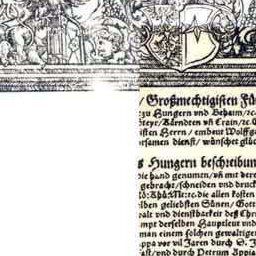 / Großmechtigisten Fü
zu Hungern vnd Behaim/ꝛc.
teyr/Kärndten vñ Crain/ꝛc.
isten Herrn / embeut Wolffg
rsamen dienst/ wünschet glüc
s Hungern beschreibun
die hand genumen/vñ mit der
gebracht/schneiden vnd druc
die alten kosten
lben geliebsten Sünen/ Gott
alt vnd dienstbarkeit deß Chri
mpt derselben Hauptleut vnd
man einem solchen gewaltige
ppa vor vil Jaren durch S. J
ast/vnd durch Petrum Appia